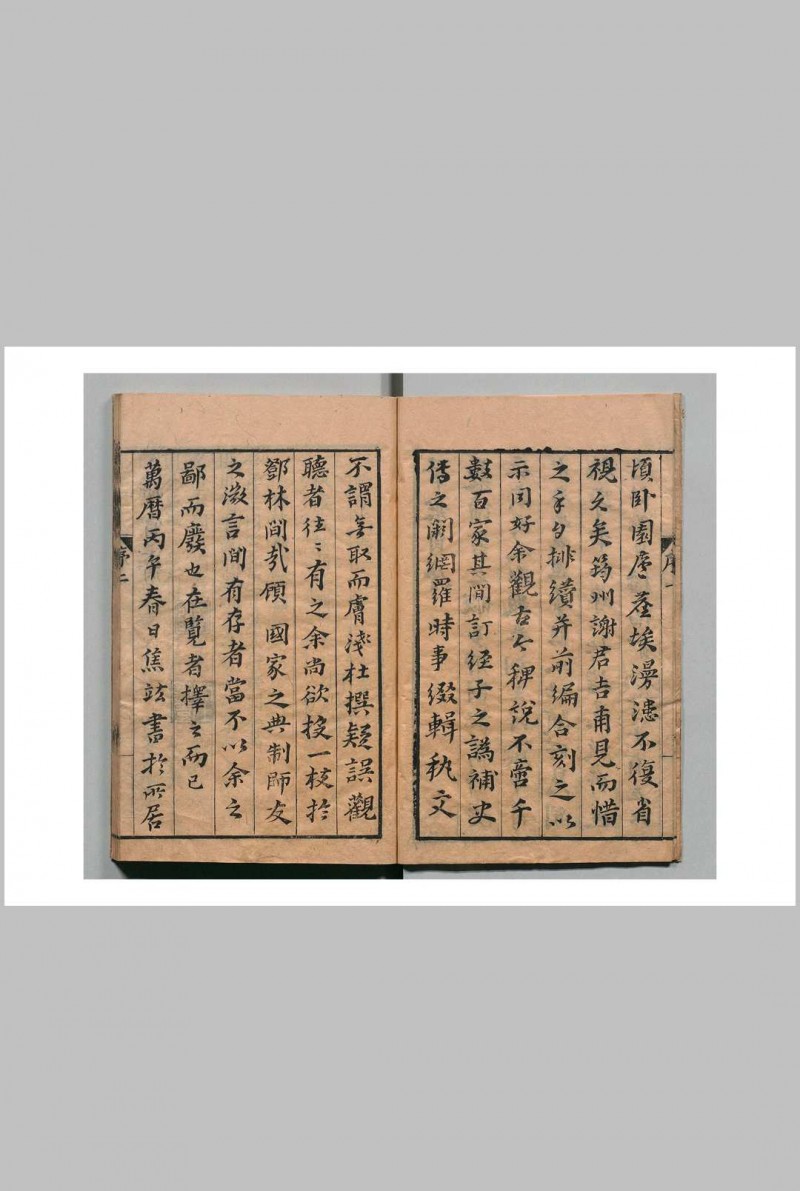 頃卧園廬塵埃漫漶不復省
視久矣筠州謝君吉甫見而惜
之手自排纘并前編合刻之以
示同好余觀古今稗說不啻千
數百家其間訂經子之譌補史
傳之闕網羅時事綴輯秇文
不謂無取而膚淺杜撰疑誤觀
聽者往〻有之余尚欲投一枝於
鄧林間哉顧國家之典制師友
之微言間有存者當不以余之
鄙而廢也在覽者擇之而已
萬曆丙午春日焦竑書於所居
序一
序二